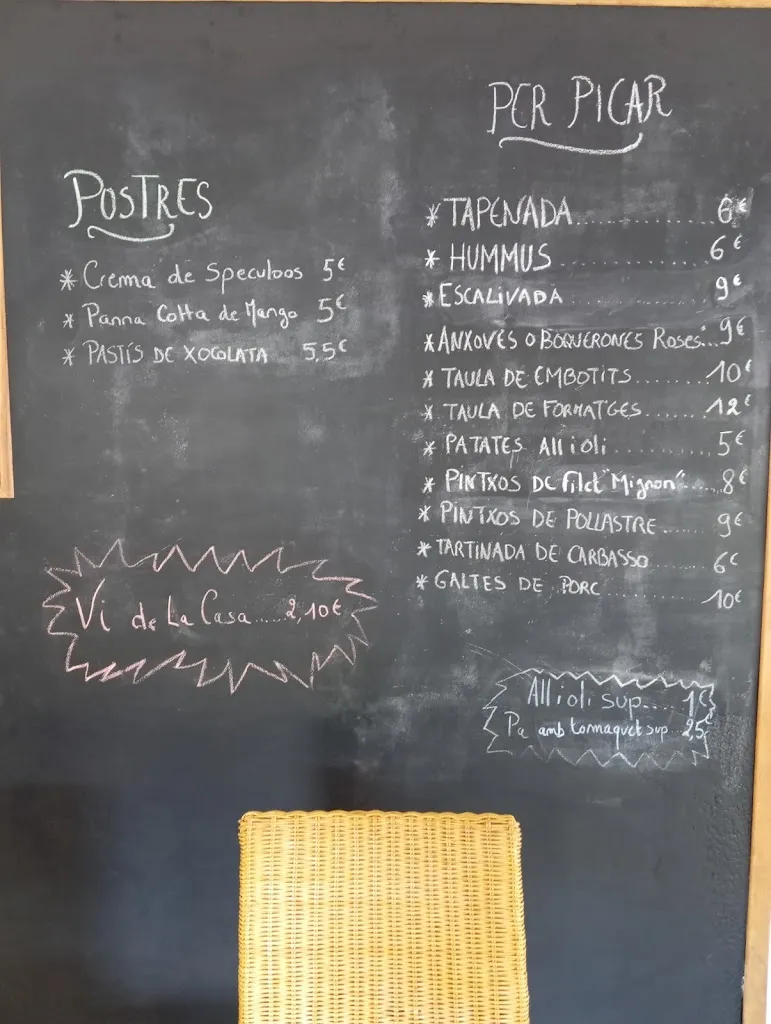 POSTRES
* Crema de Speculoos 5€
* Panna Cotta de Mango 5€
* PASTÍS DE XOCOLATA 5,5€
Vi de La Casa.....2,10€
PER PICAR
* TAPENADA.................6€
* HUMMUS..................6€
* ESCALIVADA..............9€
* ANXOVES O BOQUERONES Roses...9€
* TAULA DE EMBOTITS.......10€
* TAULA DE FORMATGES......12€
* PATATES Allioli............5€
* PINTXOS DE Filet "Mignon".....8€
* PINTXOS DE POLLASTRE......9€
* TARTINADA DE CARBASSO.......6€
* GALTES DE PORC............10€
Allioli sup.... 1€
Pa amb tomaquet sup...2,5€